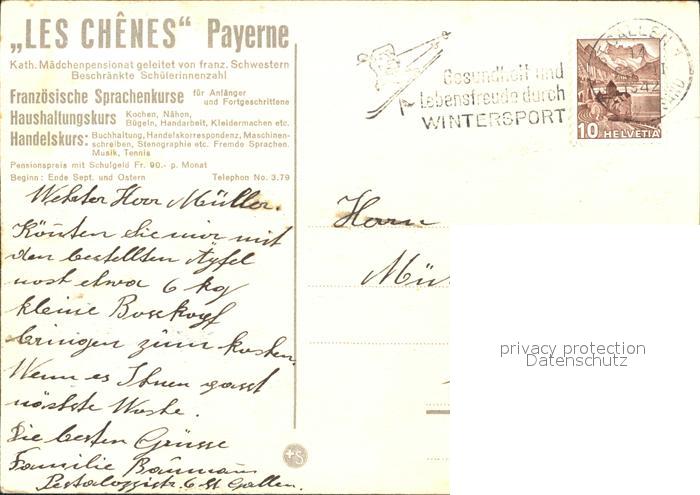 „LES CHÊNES“ Payerne
Kath. Mädchenpensionat geleitet von franz. Schwestern
Beschränkte Schülerinnenzahl
Französische Sprachenkurse für Anfänger und Fortgeschrittene
Haushaltungskurs Kochen, Nähen, Bügeln, Handarbeit, Kleidermachen etc.
Handelskurs: Buchhaltung, Handelskorrespondenz, Maschinen-
schreiben, Stenographie etc. Fremde Sprachen.
Musik, Tennis
Pensionspreis mit Schulgeld Fr. 90.- p. Monat
Beginn: Ende Sept. und Ostern Telephon No. 3.79
Werter Herr Müller.
Könten Sie mir mit
den bestellten Äpfel
nost etwa 6 kg
kleine Boskopf
bringen zum kosten.
Wenn es Ihnen passt
nöchste Woche.
Die besten Grüsse
Familie Baumann
Pestalozzistr. 6 St Gallen.
Gesundheit und
Lebensfreude durch
WINTERSPORT
GALLEN 1
10 HELVETIA
Herrn
Mü
privacy protection
Datenschutz
+S